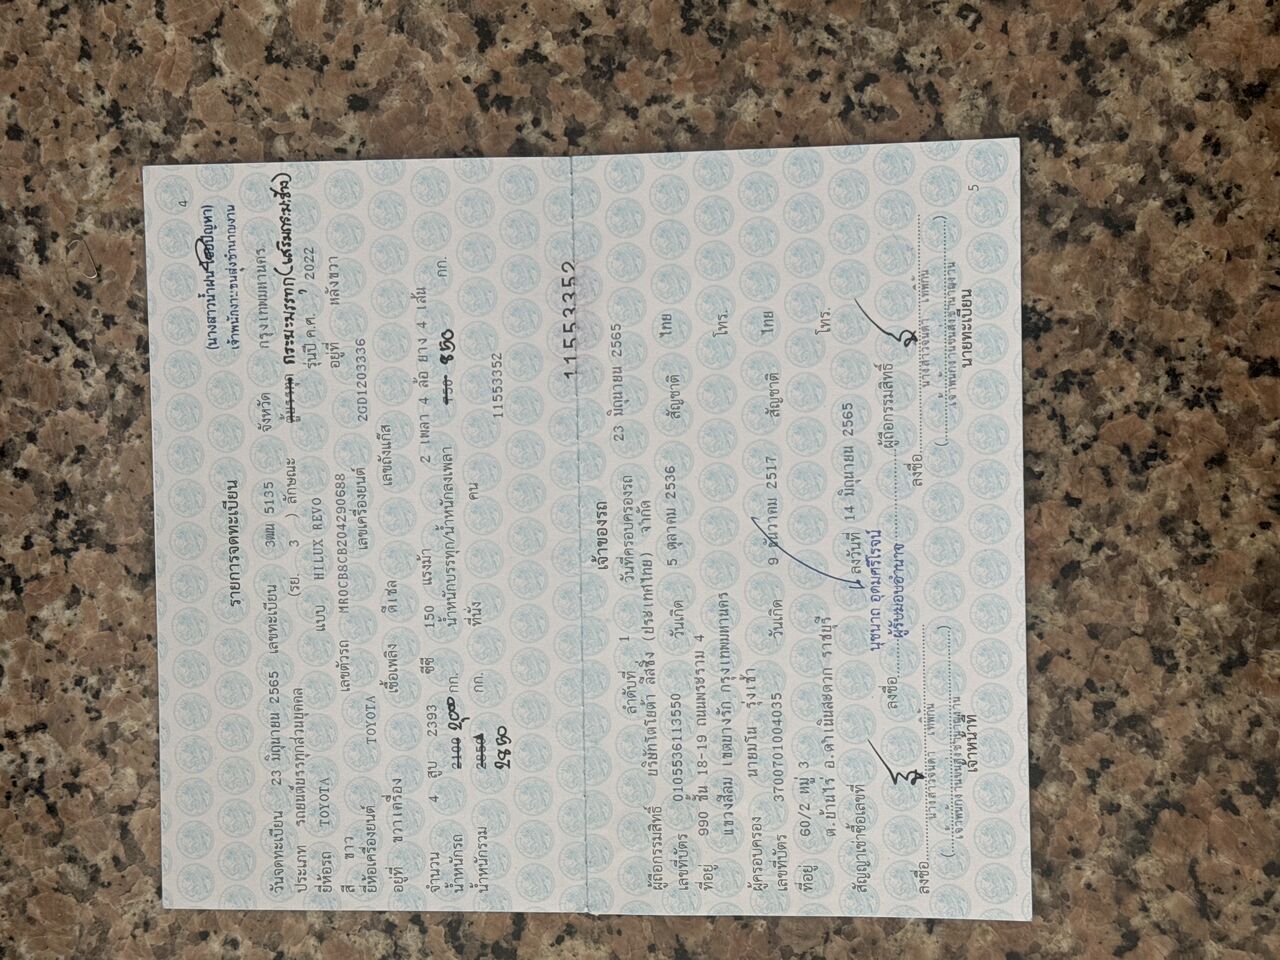 4
(นางสาวน้ำฝน ปัญหา)
เจ้าพนักงานขนส่งชำนาญงาน
รายการจดทะเบียน
วันจดทะเบียน 23 มิถุนายน 2565 เลขทะเบียน 3ฒน 5135 จังหวัด กรุงเทพมหานคร
ประเภท รถยนต์บรรทุกส่วนบุคคล (รย. 3 ) ลักษณะ ตู้บรรทุก กระบะบรรทุก(เสริมกระบะข้าง)
ยี่ห้อรถ TOYOTA แบบ HILUX REVO รุ่นปี ค.ศ. 2022
สี ขาว เลขตัวรถ MR0CB8CB204290688 อยู่ที่ หลังขวา
ยี่ห้อเครื่องยนต์ TOYOTA เลขเครื่องยนต์ 2GD1203336
อยู่ที่ ขวาเครื่อง เชื้อเพลิง ดีเซล เลขถังแก๊ส
จำนวน 4 สูบ 2393 ซีซี 150 แรงม้า 2 เพลา 4 ล้อ ยาง 4 เส้น
น้ำหนักรถ 2100 2000 กก. น้ำหนักบรรทุก/น้ำหนักลงเพลา 750 850 กก.
น้ำหนักรวม 2850 กก. ที่นั่ง คน 11553352
2850
11553352
เจ้าของรถ
ลำดับที่ 1 วันที่ครอบครองรถ 23 มิถุนายน 2565
ผู้ถือกรรมสิทธิ์ บริษัทโตโยต้า ลีสซิ่ง (ประเทศไทย) จำกัด
เลขที่บัตร 0105536113550 วันเกิด 5 ตุลาคม 2536 สัญชาติ ไทย
ที่อยู่ 990 ชั้น 18-19 ถนนพระราม 4
แขวงสีลม เขตบางรัก กรุงเทพมหานคร โทร.
ผู้ครอบครอง นายมโน รุ่งเช้า
เลขที่บัตร 3700701004035 วันเกิด 9 ธันวาคม 2517 สัญชาติ ไทย
ที่อยู่ 60/2 หมู่ 3
ต.บ้านไร่ อ.ดำเนินสะดวก ราชบุรี โทร.
สัญญาเช่าซื้อเลขที่ ลงวันที่ 14 มิถุนายน 2565
นุชนาถ อุดมศรีโรจน์
ลงชื่อ ผู้รับมอบอำนาจ ผู้ถือกรรมสิทธิ์
ลงชื่อ นางสาวจินดา เทพิ์กัน ลงชื่อ นางสาวจินดา เทพิ์กัน
(เจ้าพนักงานขนส่งชำนาญงาน) (เจ้าพนักงานขนส่งชำนาญงาน)
เจ้าหน้าที่ นายทะเบียน
5